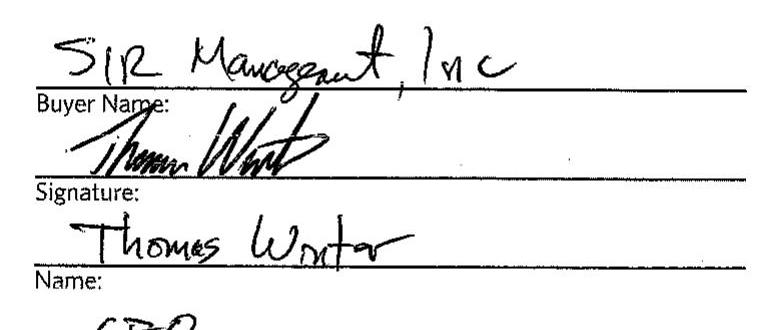 SIR Management, Inc
Buyer Name:
Thomas
Signature:
Thomas Winter
Name: